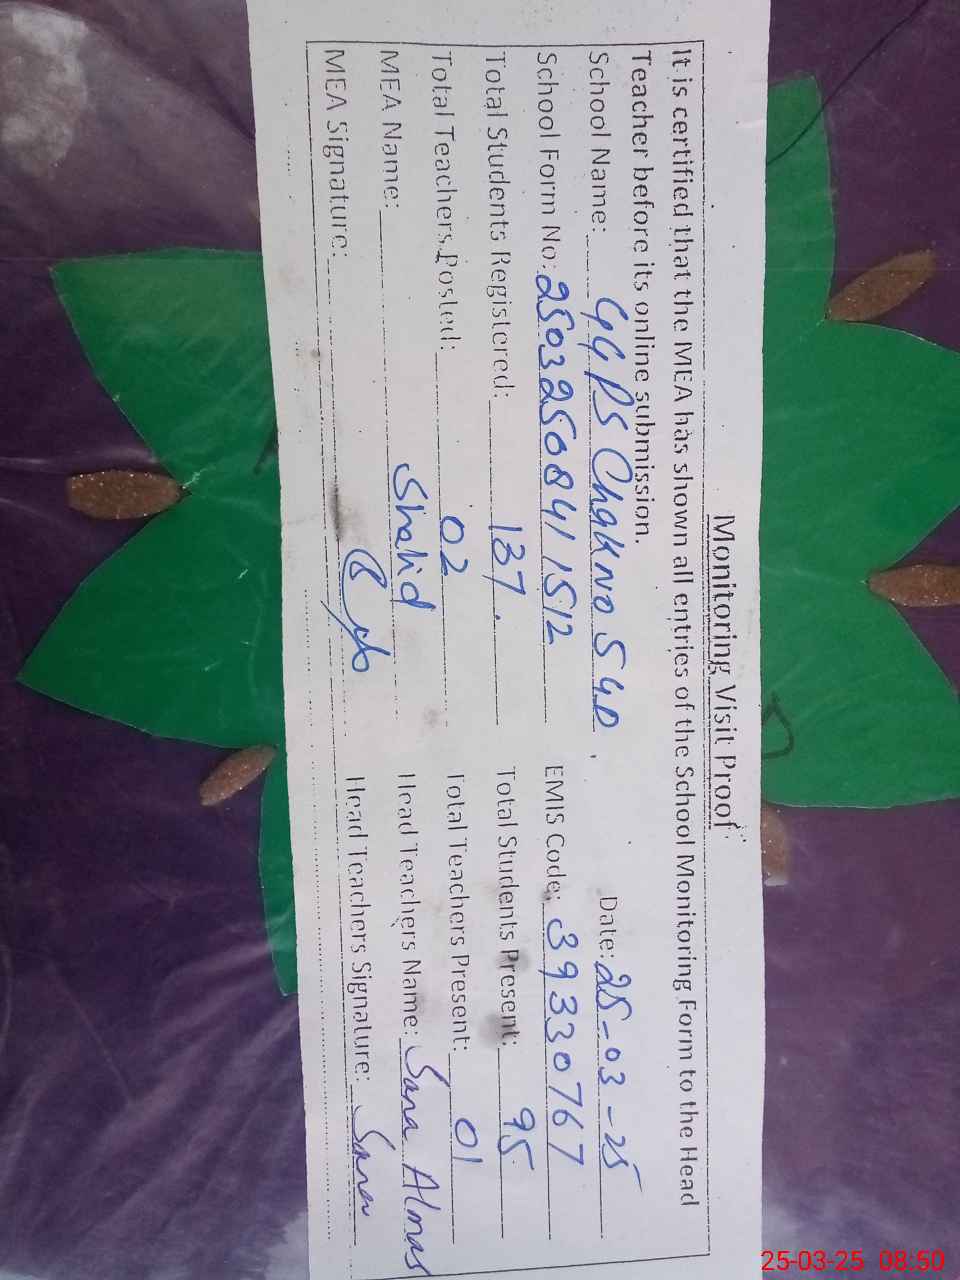 Monitoring Visit Proof
It is certified that the MEA has shown all entries of the School Monitoring Form to the Head
Teacher before its online submission.
School Name: GGPS Chak No 5 GD Date: 25-03-25
School Form No: 2503250841512 EMIS Code: 39330767
Total Students Registered: 137. Total Students Present: 95
Total Teachers Posted: 02 Total Teachers Present: 01
MEA Name: Shahid Head Teachers Name: Sana Almas
MEA Signature: Head Teachers Signature: Sana
25-03-25 08:50